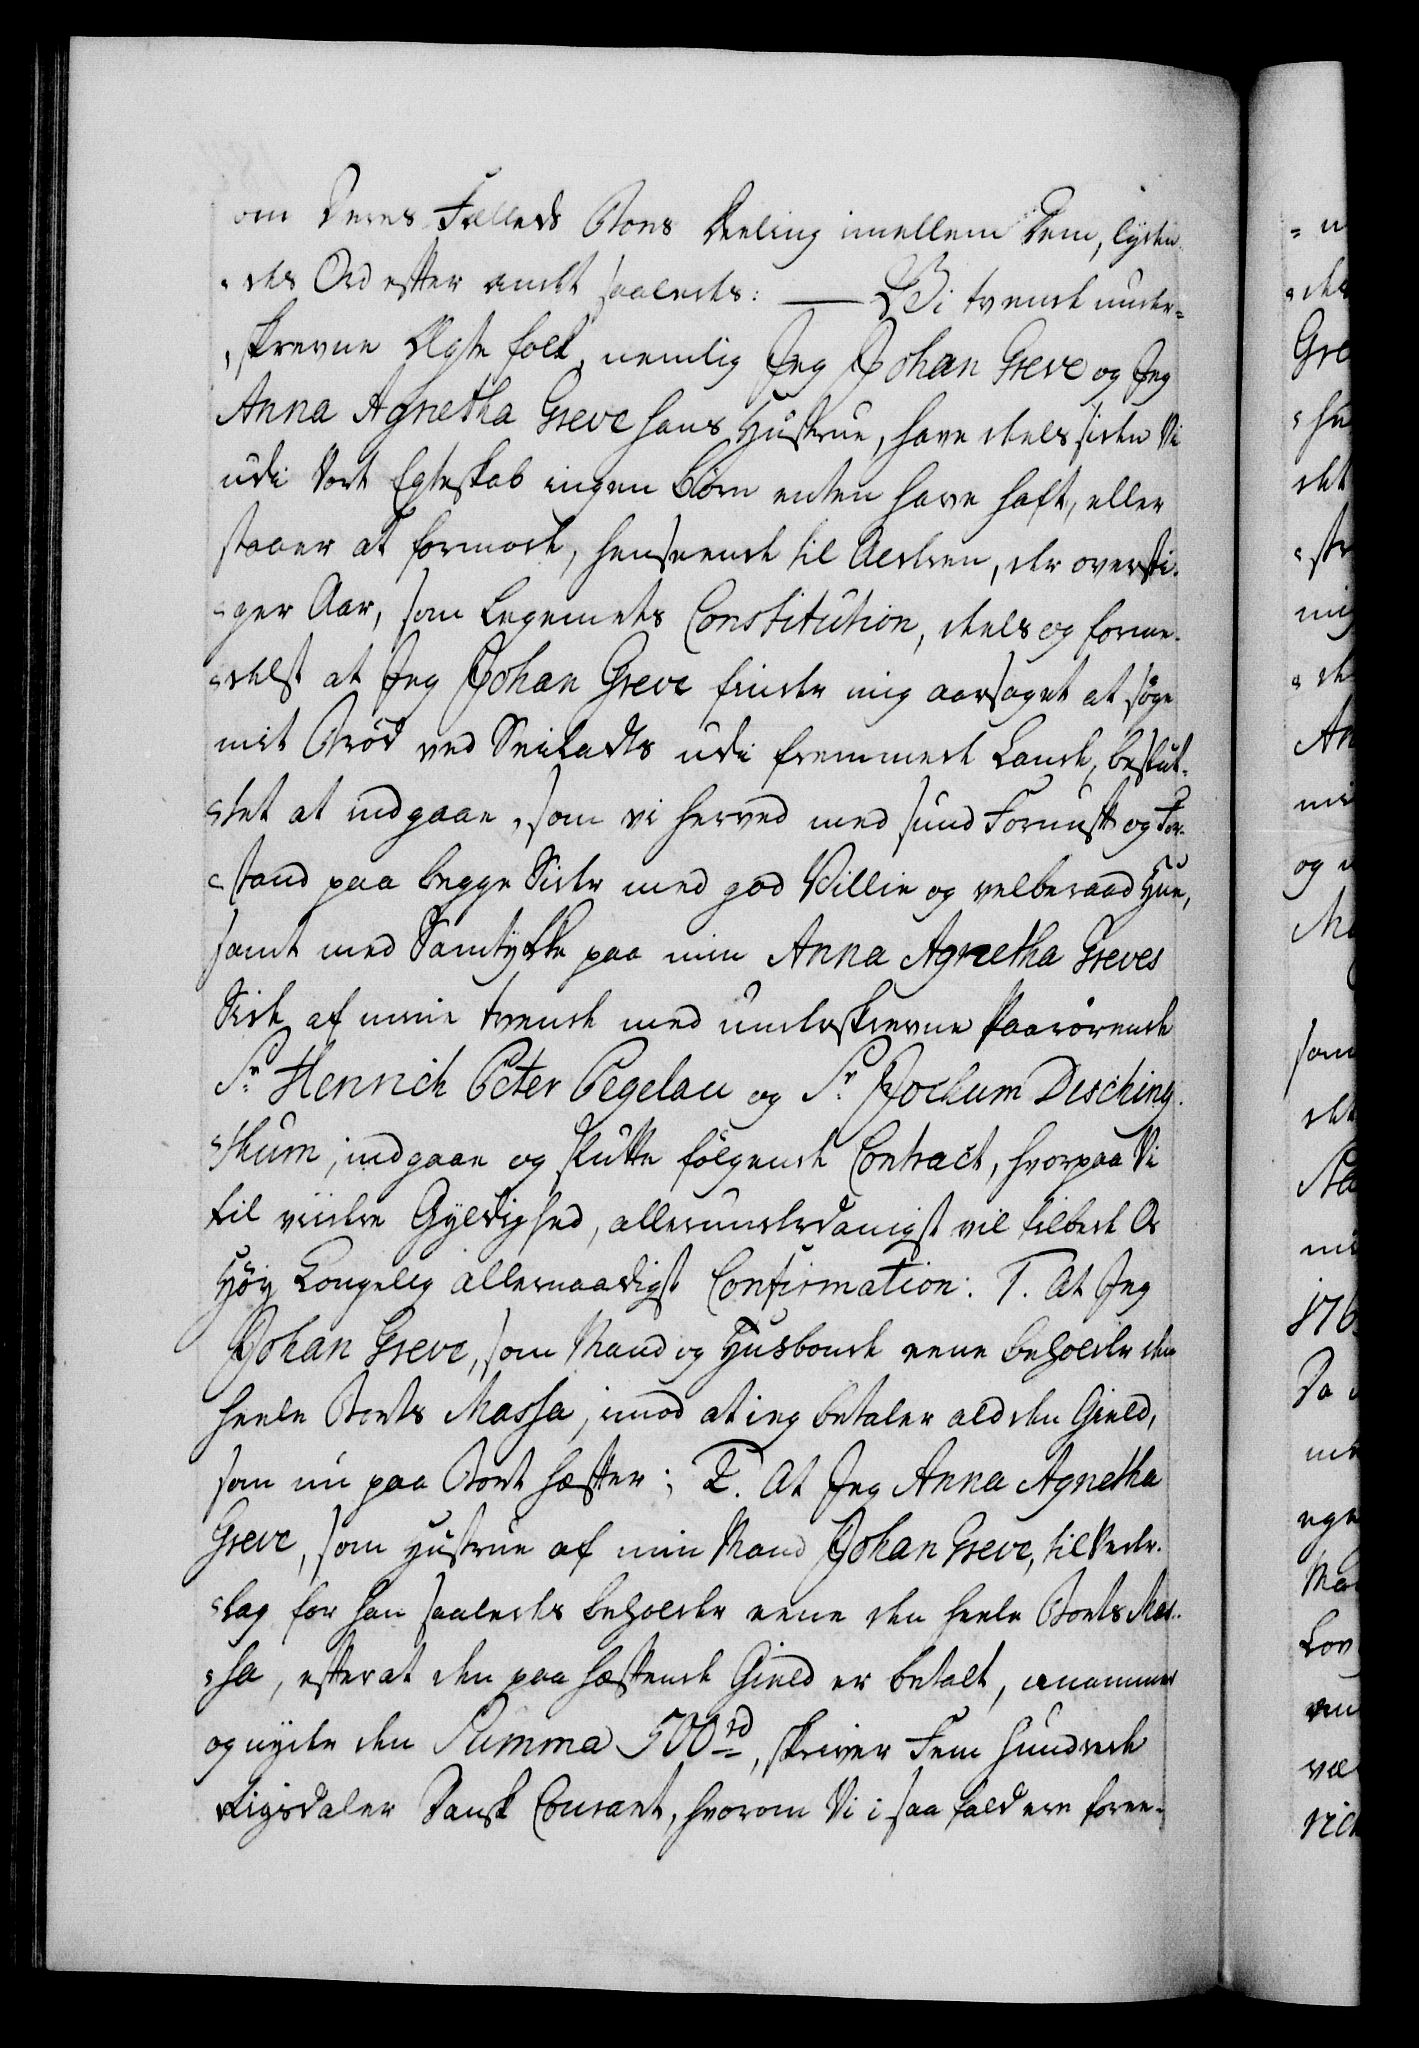 om Deres Fælleds Boes Deeling imellem Dem, lyden-
-des Ord efter andet saaledes: — Vi tvende under-
-skrevne Ægte folk, nemlig Jeg Johan Greve og Jeg
Anna Agnetha Greve hans Hustrue, have deels siden Vi
udi Vort Egteskab ingen Børn enten have haft, eller
staaer at formode, henseende til Alderen, der oversti-
-ger Aar, som Legemets Constitution, deels og forme-
-delst at Jeg Johan Greve finder mig aarsaget at søge
mit Brød ved Seilads udi fremmede Lande, beslut-
-tet at indgaae, som vi herved med sund Fornuft og For-
-stand paa begge Sider med god Villie og velberaad Hue,
samt med Samtykke paa min Anna Agnetha Greves
Side af mine tvende med underskrevne Paarørende
Sr. Henrich Peter Pegelau og Sr. Jochum Desching-
-thum, indgaae og slutte følgende Contract, hvorpaa Vi
til viidre Gyldighed, allerunderdanigst vil tilbede Os
Høy Kongelig allernaadigst Confirmation: 1. At Jeg
Johan Greve, som Mand og Husbonde eene beholder den
heele Boets Massa, imod at jeg betaler ald den Gield,
som nu paa Boet hæfter; 2. At Jeg Anna Agnetha
Greve, som Hustrue af min Mand Johan Greve, til Veder-
-lag for han saaledes beholder eene den heele Boets Mas-
-sa, efter at den paa hæftende Gield er betalt, annammer
og nyder den Summa 500 rd, skriver Fem hundrede
Rigsdaler Dansk Courant, hvorom Vi i saa fald ere foree-